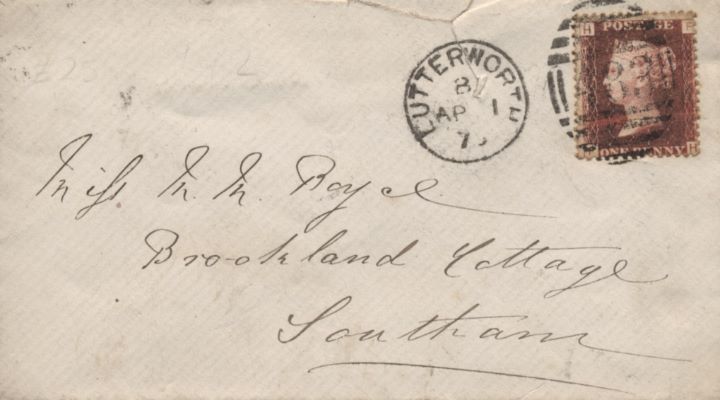 LUTTERWORTH
AP 1
7
H E
POSTAGE
ONE PENNY
H
Miss M. M. Boyce
Brookland Cottage
Southam